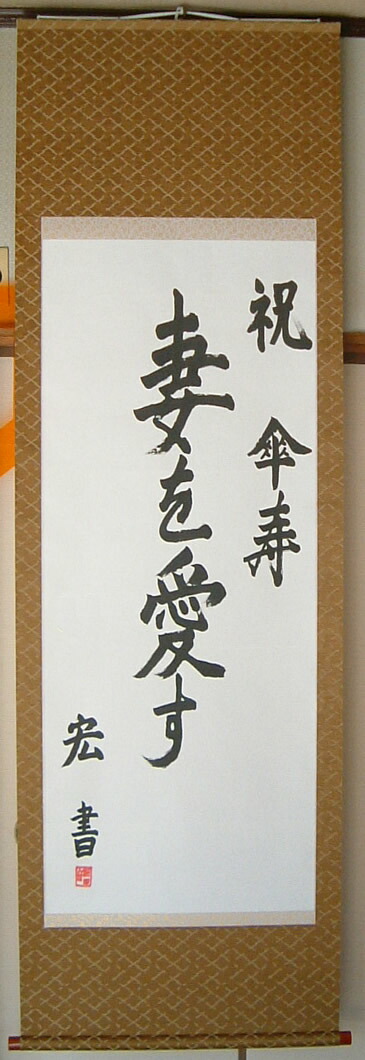 祝 傘寿
妻を愛す
宏 書